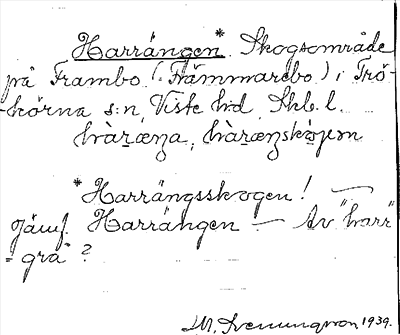 Harrängen* Skogsområde
på Frambo (: Främmarebo) i Trö-
körna s:n, Viste hd, Skb. l.
hàræŋa, hàræŋskògen
*Harrängsskogen! —
Jämf. Harrängen — Av "harr"
= grå ?
M. Svenungsson 1939.